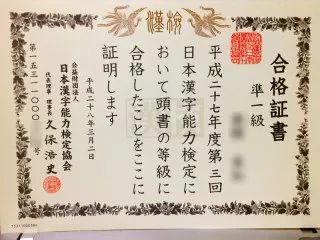 漢検
合格証書
準一級
平成二十七年度第三回
日本漢字能力検定に
おいて頭書の等級に
合格したことをここに
証明します
平成二十八年三月二日
公益財団法人
日本漢字能力検定協会
代表理事・理事長
久保浩史
第一五三一一〇〇〇
号